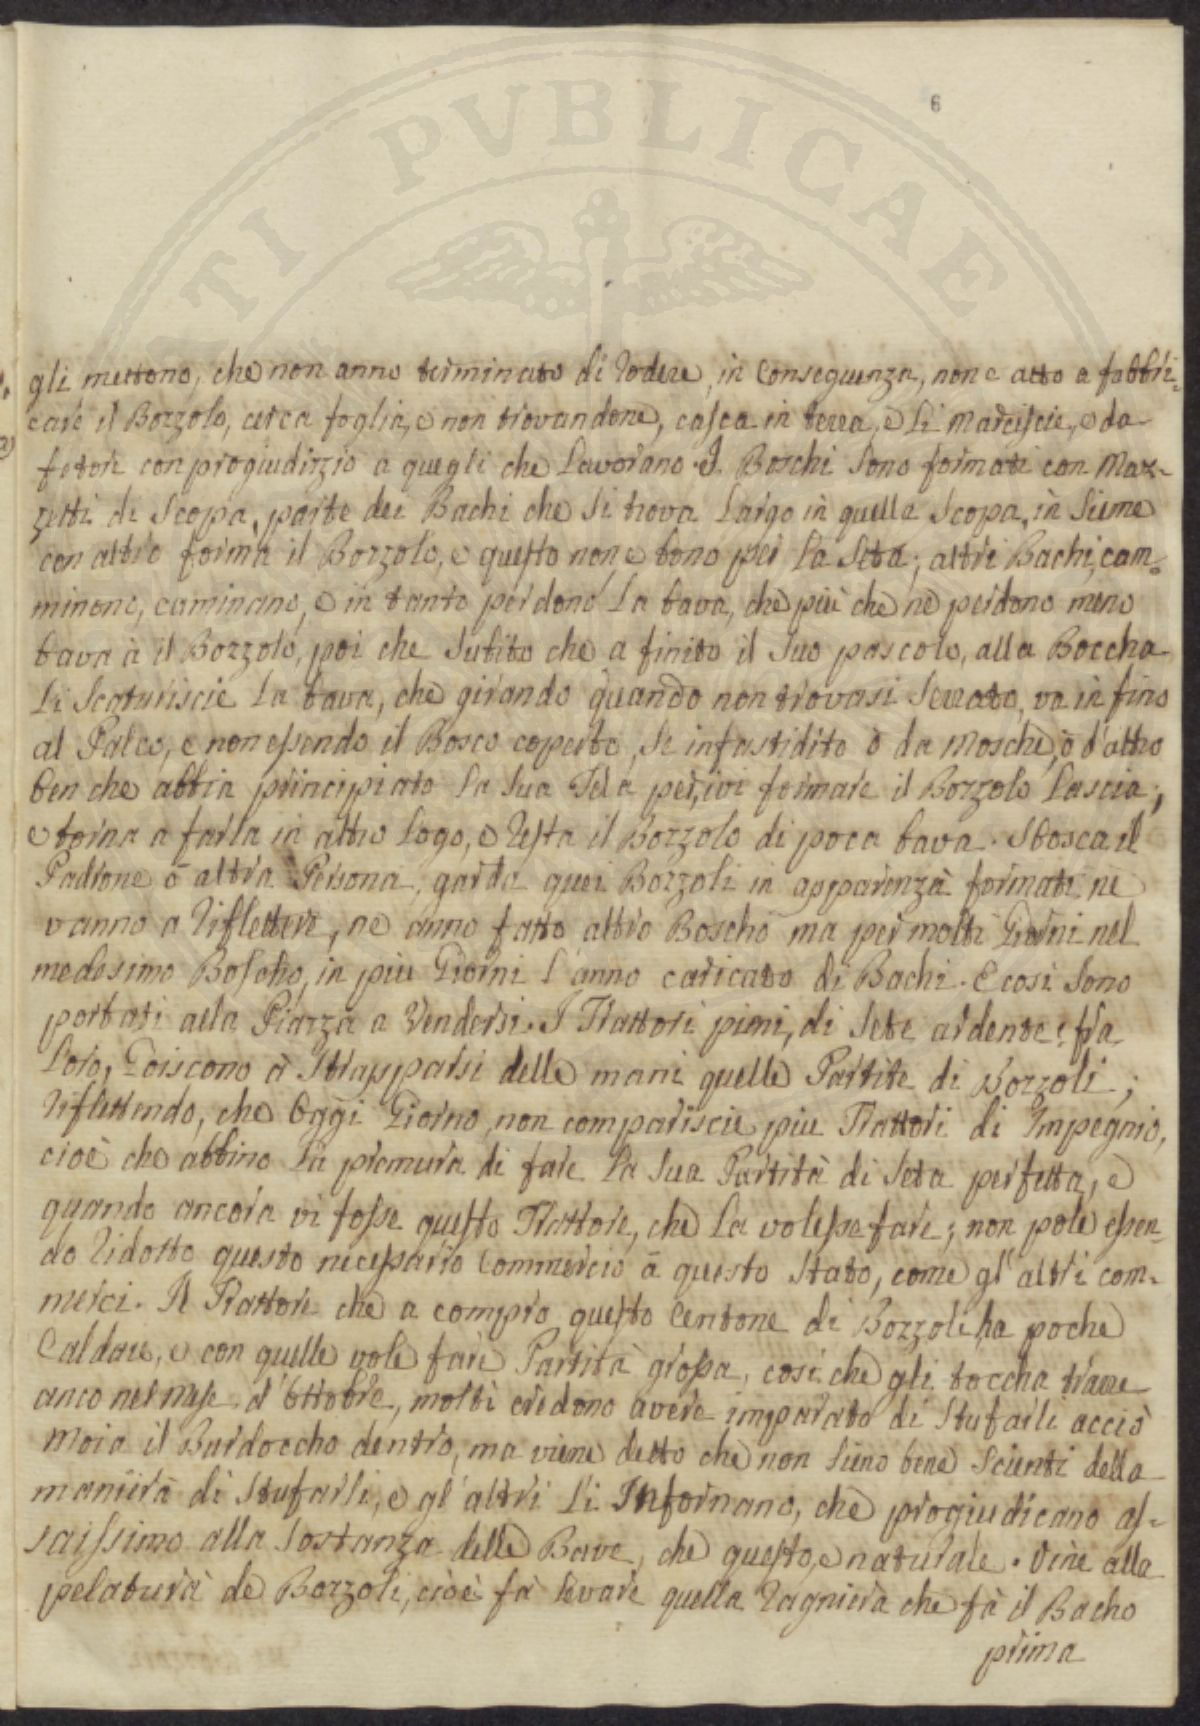 TI PVBLICAE
6
gli mettono, che non anno terminato di rodere, in Conseguenza, non e atto a fabbri=
care il Bozzolo, cerca foglia, e non trovandone, casca in terra, e li marciscie, e da
fetore con progiudizzio a quegli che Lavorano. I Boschi sono formati con Maz=
zetti di Scopa, parte dei Bachi che si trova largo in quella Scopa, in sieme
con altro forma il Bozzolo, e questo non e bono per la Seta; altri Bachi, cam=
minono, caminano, e in tanto perdono la bava, che più che ne perdono meno
bava à il Bozzolo, poi che subito che a finito il suo pascolo, alla Boccha
li Scaturiscie la bava, che girando quando non trovasi Serrato, va in fino
al Palco, e non essendo il Bosco coperto, se infastidito ò da Mosche, ò d'altro
ben che abbia principiato la sua Tela per ivi formare il Bozzolo lascia;
e torna a farla in altro logo, e resta il Bozzolo di poca bava. Sbosca il
Padrone ò altra Persona, garda quei Bozzoli in apparenza formati ne
vanno a riflettere, ne anno fatto altro Boscho ma per molti Giorni nel
medesimo Boscho, in piu Giorni l'anno caricato di Bachi. E così sono
portati alla Piazza a Vendersi. I Trattori pimi, di sete ardente fra
loro, Goiscono à strapparsi delle mani quelle Partite di Bozzoli;
riflettendo, che Oggi Giorno, non compariscie piu Trattori di Impegnio,
cioè che abbino la premura di fare la sua Partita di Seta perfetta, e
quando ancora vi fosse questo Trattore, che la volesse fare; non pole essen=
do ridotto questo necessario Commercio à questo stato, come gl'altri com=
merci. Il Trattore che a compro questo Centone di Bozzoli, ha poche
Caldare, e con quelle vole fare Partita grossa, così che gli toccha trarre
anco nel mese d'Ottobre, molti credono avere imparato di Stufarli acciò
moia il Burdoccho dentro, ma viene detto che non sieno bene scienti della
maniera di Stufarli, e gl'altri li Infornano, che progiudicano as=
saissimo alla sostanza delle Bave, che questo, e naturale. Vine alla
pelatura de Bozzoli, cioè fà levare quella ragniera che fà il Bacho
prima